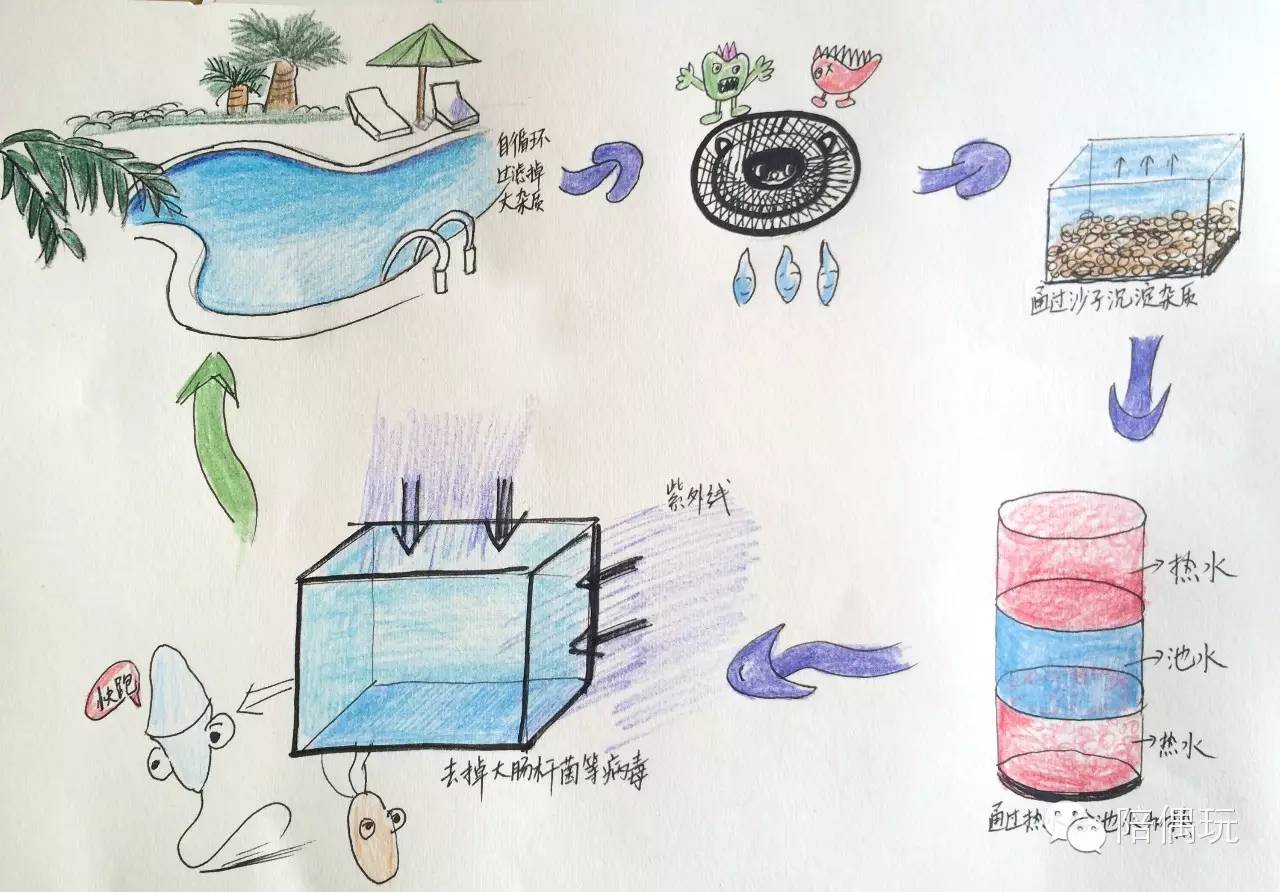 自循环
过滤掉
大杂质
通过沙子沉淀杂质
紫外线
热水
池水
热水
快跑
去掉大肠杆菌等病毒
通过热
池水
陪偶玩